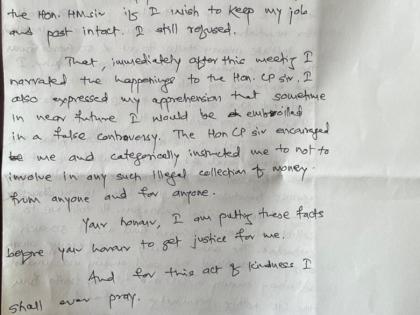 the Hon. HM sir if I wish to keep my job
and post intact. I still refused.
That, immediately after this meeting I
narrated the happenings to the Hon. CP sir. I
also expressed my apprehension that sometime
in near future I would be embroiled
in a false controversy. The Hon CP sir encouraged
me and categorically instructed me to not to
involve in any such illegal collection of money
from anyone and for anyone.
Your honour, I am putting these facts
before your honour to get justice for me.
And for this act of kindness I
shall ever pray.